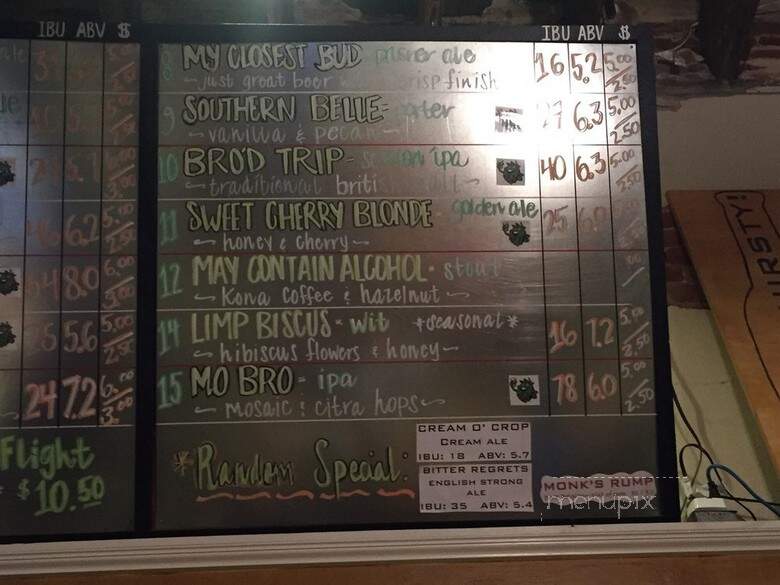 IBU ABV $
IBU ABV $
8 MY CLOSEST BUD pilsner ale 16 5.2 5.00/2.50
~ just great beer crisp finish
9 SOUTHERN BELLE - porter 27 6.3 5.00/2.50
~ vanilla & pecan ~
10 BRO'D TRIP - session ipa 40 6.3 5.00/2.50
~ traditional british malt ~
11 SWEET CHERRY BLONDE - golden ale 25
~ honey & cherry ~
12 MAY CONTAIN ALCOHOL - stout
~ Kona coffee & hazelnut ~
14 LIMP BISCUS - wit *seasonal* 16 7.2 5.00/2.50
~ hibiscus flowers & honey ~
15 M.O BRO - ipa 78 6.0 5.00/2.50
~ mosaic & citra hops ~
6.2
8.0
5.6
24 7.2 3.00
Flight
$10.50
*Random Special:
CREAM O' CROP
CREAM ALE
IBU: 18 ABV: 5.7
BITTER REGRETS
ENGLISH STRONG
ALE
IBU: 35 ABV: 5.4
MONK'S RUMP
menupix
IRSTY!